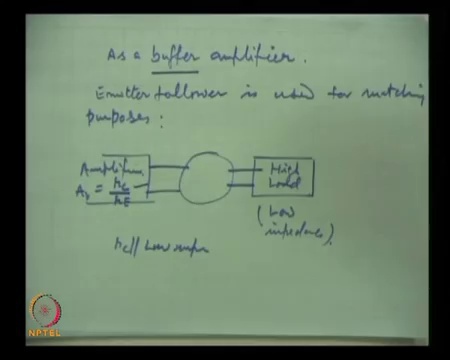 As a buffer amplifier.
Emitter follower is used for matching
purposes:
Amplifier
High
Load
(Low
impedance).
NPTEL